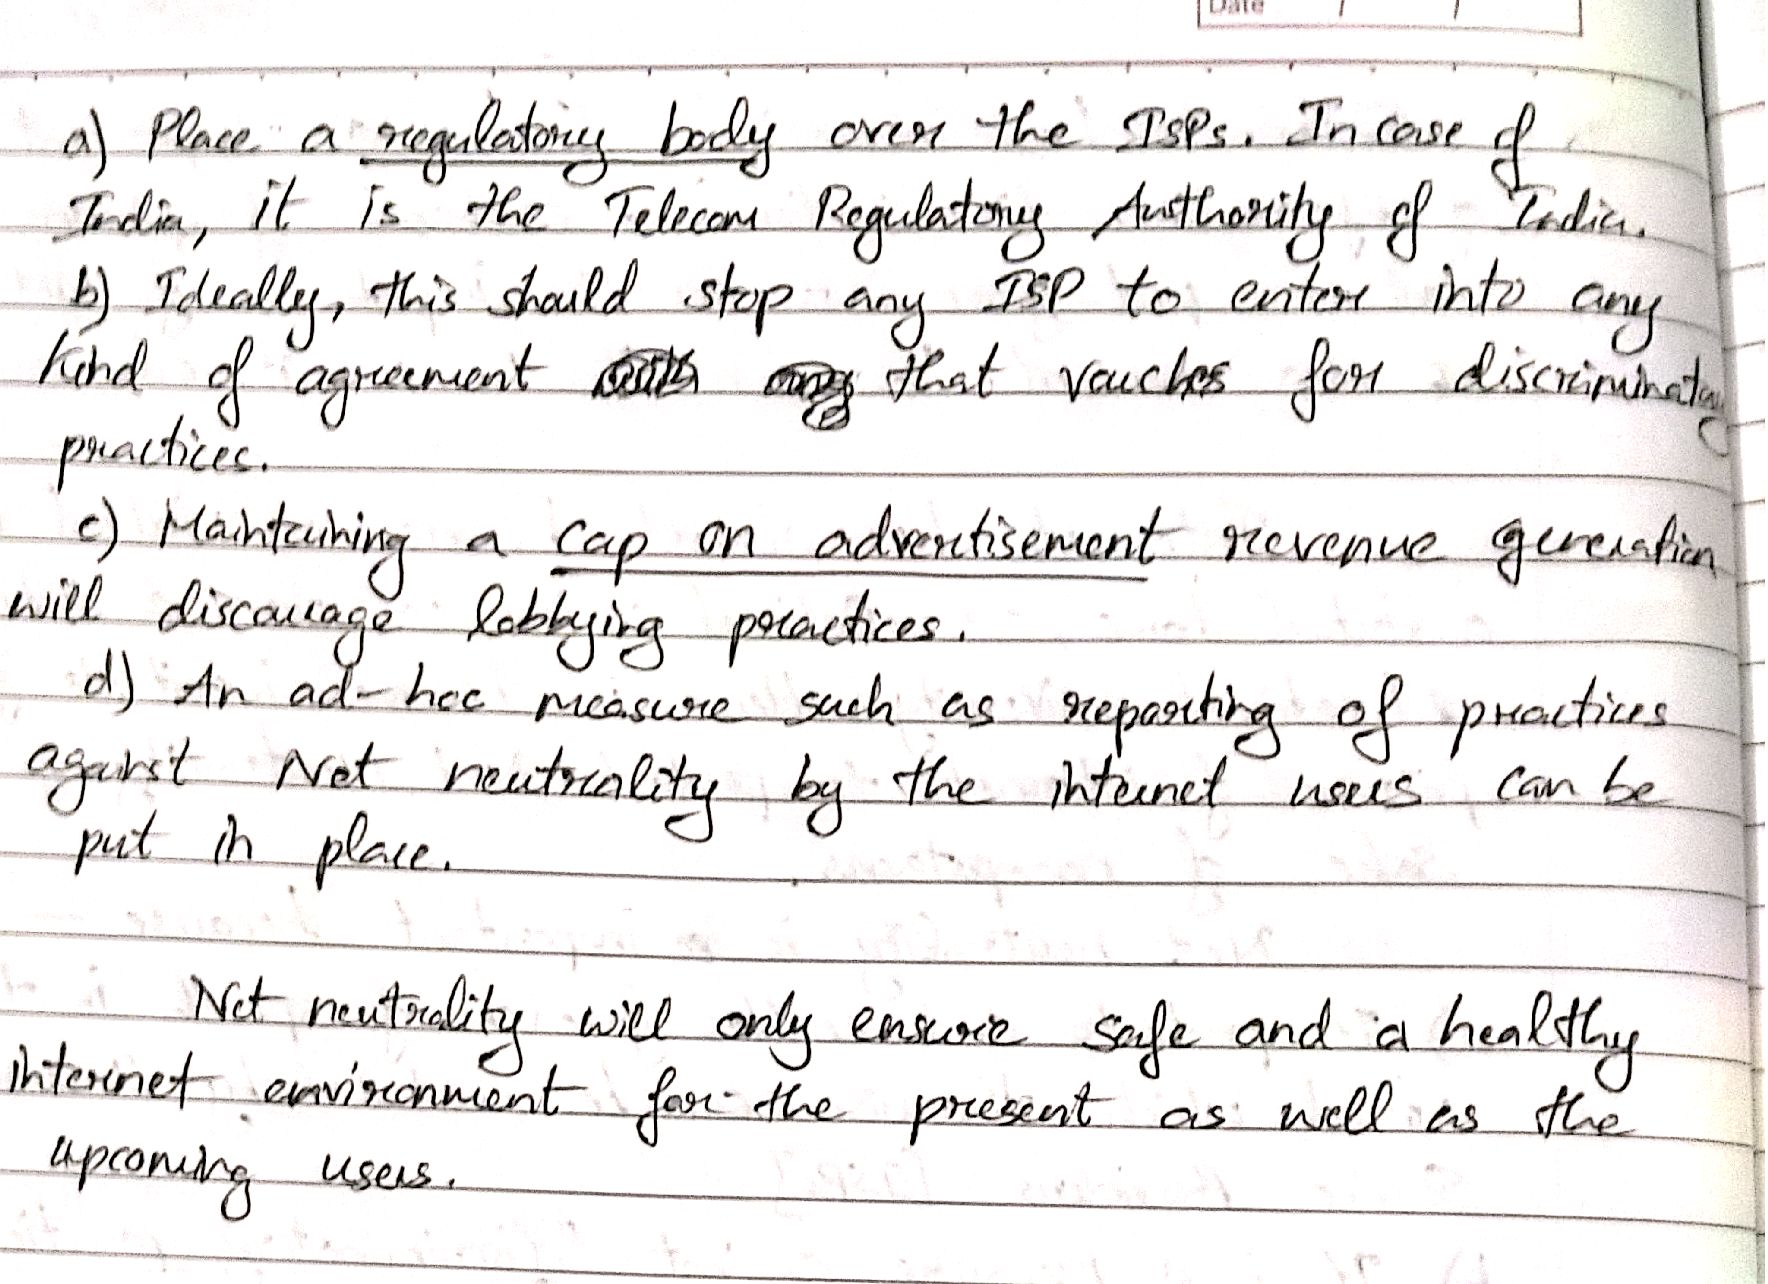 Date / /
a) Place a regulatory body over the ISPs. In case of
India, it is the Telecom Regulatory Authority of India.
b) Ideally, this should stop any ISP to enter into any
kind of agreement that vouches for discriminatory
practices.
c) Maintaining a cap on advertisement revenue generation
will discourage lobbying practices.
d) An ad-hoc measure such as reporting of practices
against Net neutrality by the internet users can be
put in place.
Net neutrality will only ensure safe and a healthy
internet environment for the present as well as the
upcoming users.